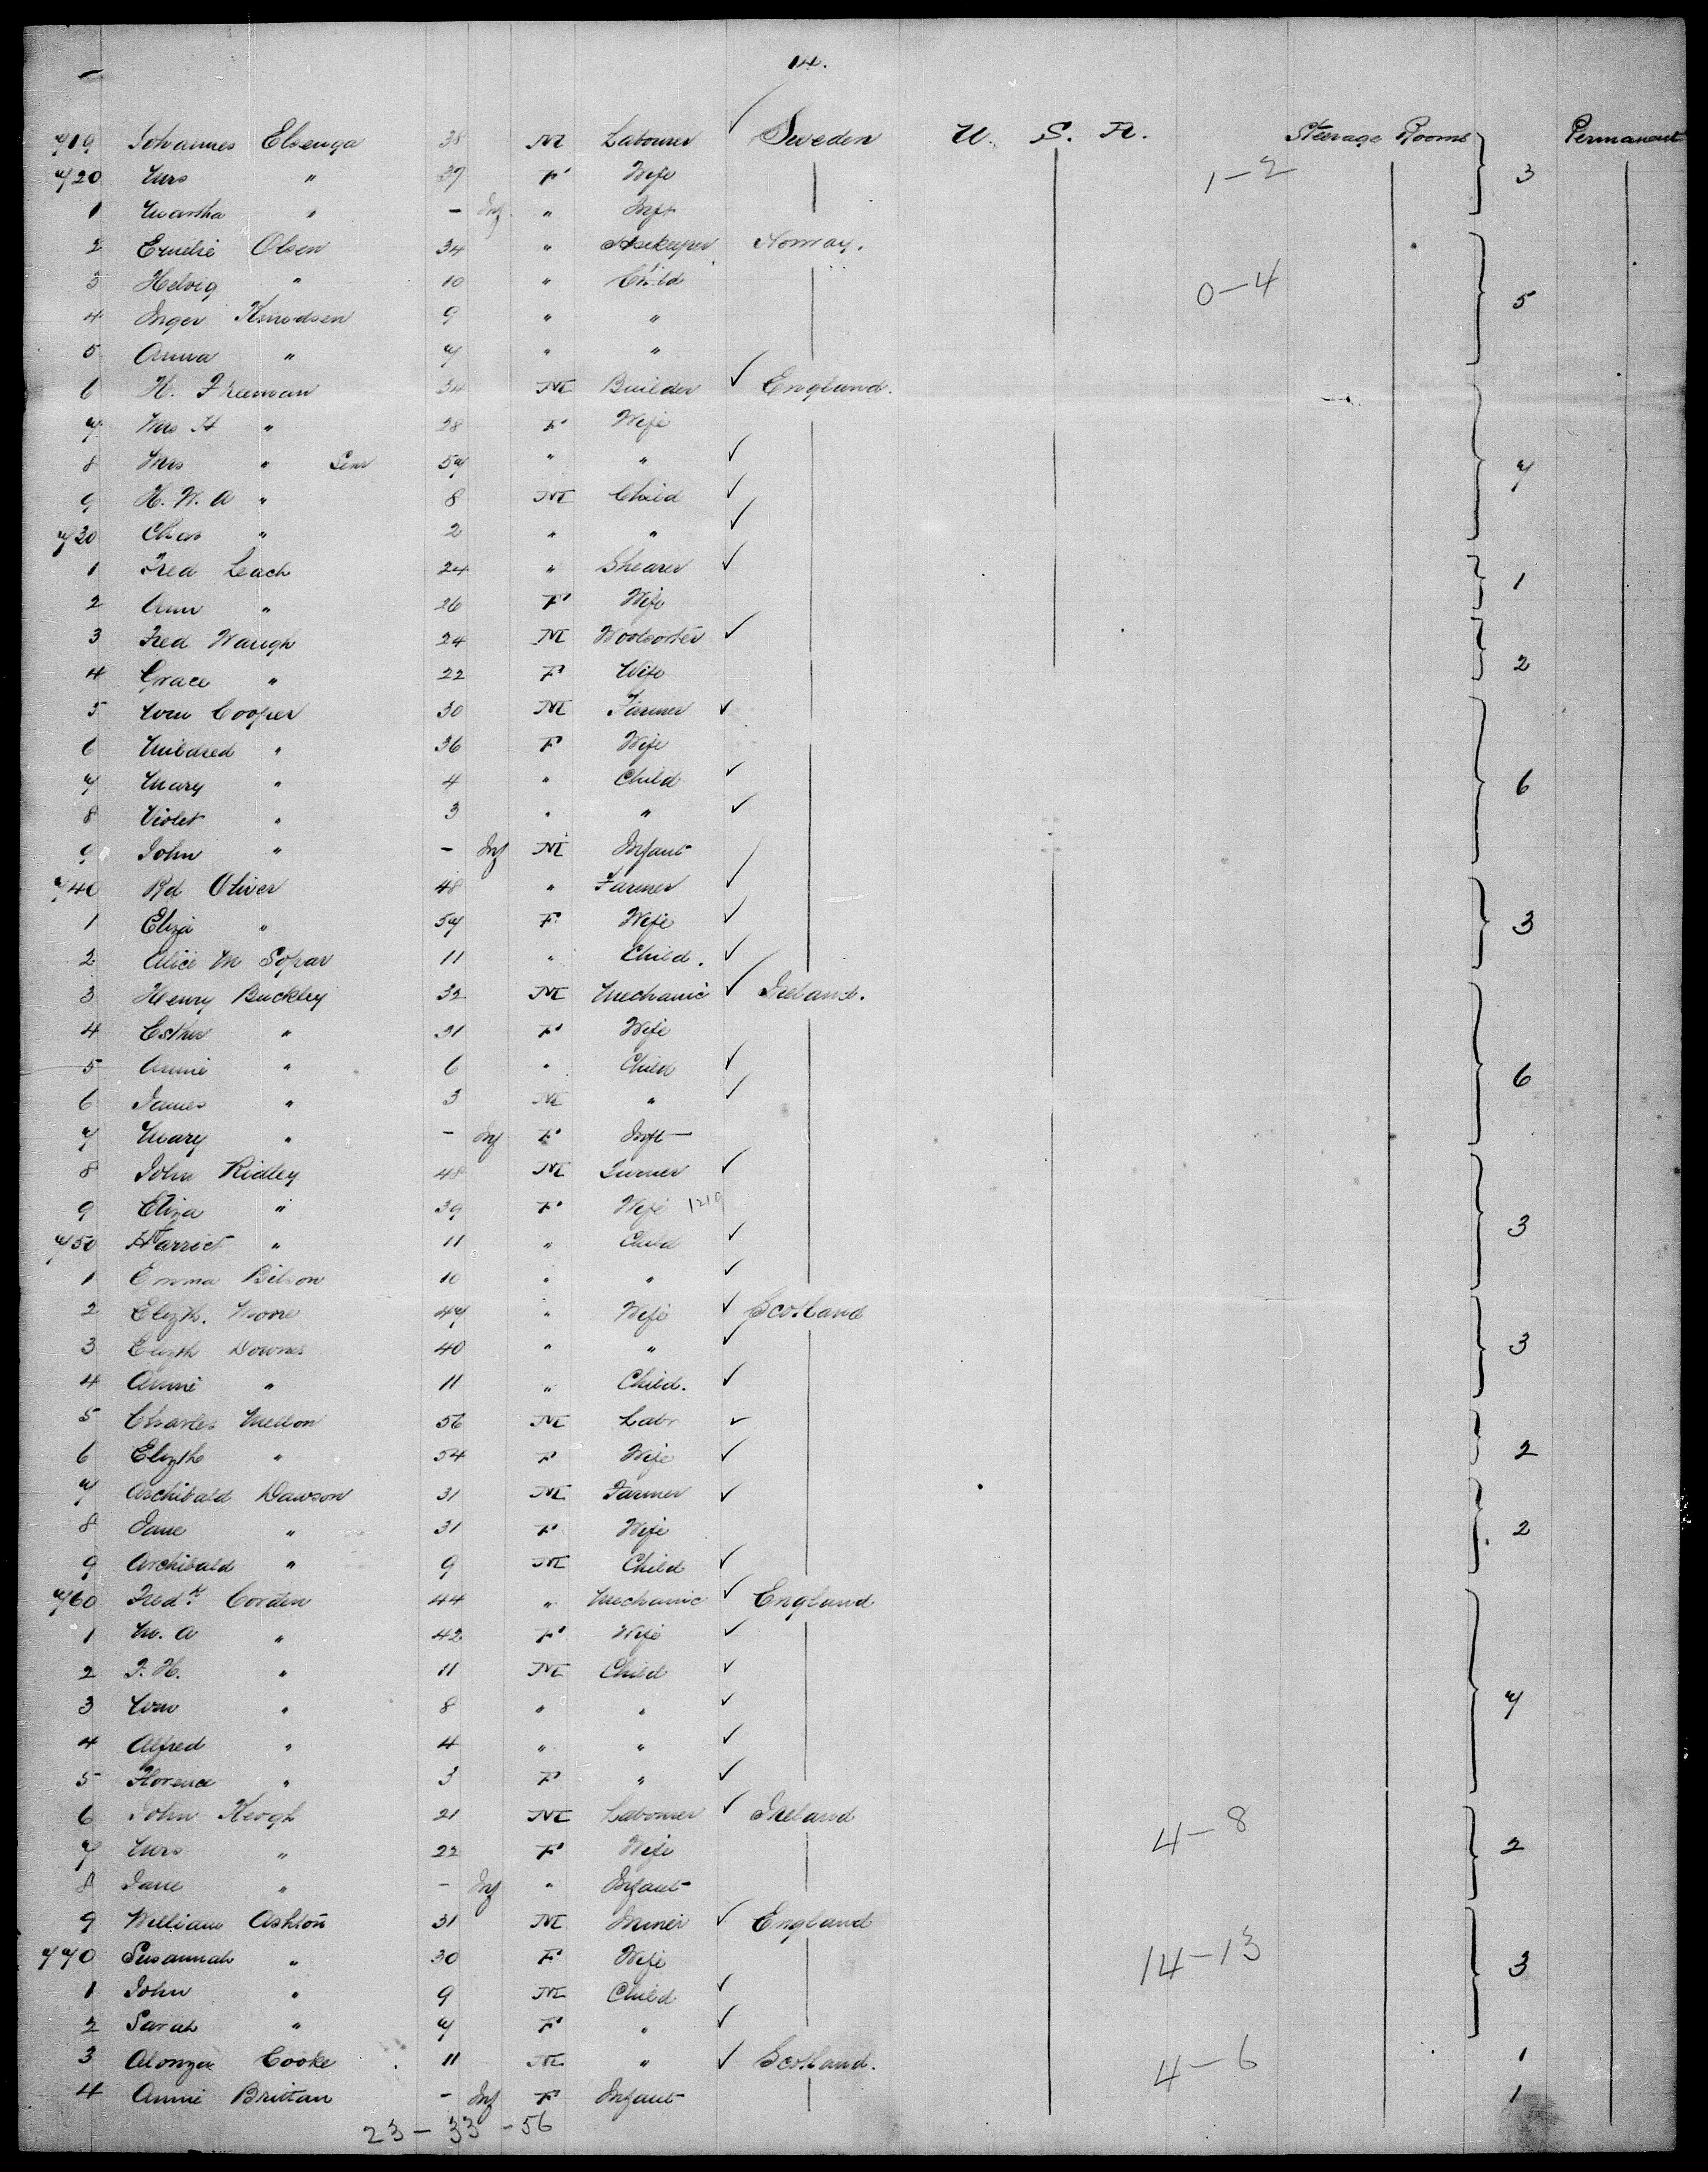 14.
719 Johannes Elsenga 38 M Labourer ✓ Sweden U. S. A. Steerage Rooms Permanent
720 Mrs " 37 F Wife 1-2 3
1 Martha " - Inf " Inft
2 Emelie Olsen 34 " Hsekeeper Norway.
3 Helvig " 10 " Child 0-4 5
4 Inger Knudsen 9 " "
5 Anna " 7 " "
6 H. Freeman 34 M Builder ✓ England.
7 Mrs H " 28 F Wife
8 Mrs " Senr 57 " " ✓ 7
9 H. W. A " 8 M Child ✓
730 Chas " 2 " " ✓
1 Fred Leach 24 " Shearer ✓ 1
2 Ann " 26 F Wife
3 Fred Waugh 24 M Woolsorter ✓
4 Grace " 22 F Wife 2
5 Wm Cooper 30 M Farmer ✓
6 Mildred " 36 F Wife
7 Mary " 4 " Child ✓ 6
8 Violet " 3 " " ✓
9 John " - Inf M Infant
740 Rd Oliver 48 " Farmer ✓
1 Eliza " 57 F Wife ✓ 3
2 Alice M Sopar 11 " Child. ✓
3 Henry Buckley 32 M Mechanic ✓ Ireland.
4 Esther " 31 F Wife
5 Annie " 6 " Child ✓ 6
6 James " 3 M " ✓
7 Mary " - Inf F Inft
8 John Ridley 48 M Turner ✓
9 Eliza " 39 F Wife 1219 3
750 Harriet " 11 " Child ✓
1 Emma Bilson 10 " " ✓
2 Elizth. Moore 47 " Wife ✓ Scotland
3 Elizth Downes 40 " " ✓ 3
4 Annie " 11 " Child. ✓
5 Charles Mellon 56 M Labr ✓
6 Elizth " 54 F Wife ✓ 2
7 Archibald Dawson 31 M Farmer ✓
8 Jane " 31 F Wife 2
9 Archibald " 9 M Child ✓
760 Fredk. Corden 44 " Mechanic ✓ England
1 M. A " 42 F Wife ✓
2 F. H. " 11 M Child ✓
3 Wm " 8 " " ✓ 7
4 Alfred " 4 " " ✓
5 Florence " 3 F " ✓
6 John Keogh 21 M Labourer ✓ Ireland 4-8
7 Mrs " 22 F Wife 2
8 Jane " - Inf " Infant
9 William Ashton 31 M Miner ✓ England
770 Susannah " 30 F Wife 14-13 3
1 John " 9 M Child ✓
2 Sarah " 7 F " ✓
3 Alonza Cooke 11 M " ✓ Scotland. 4-6 1
4 Annie Brittan - Inf F Infant 1
23-33-56